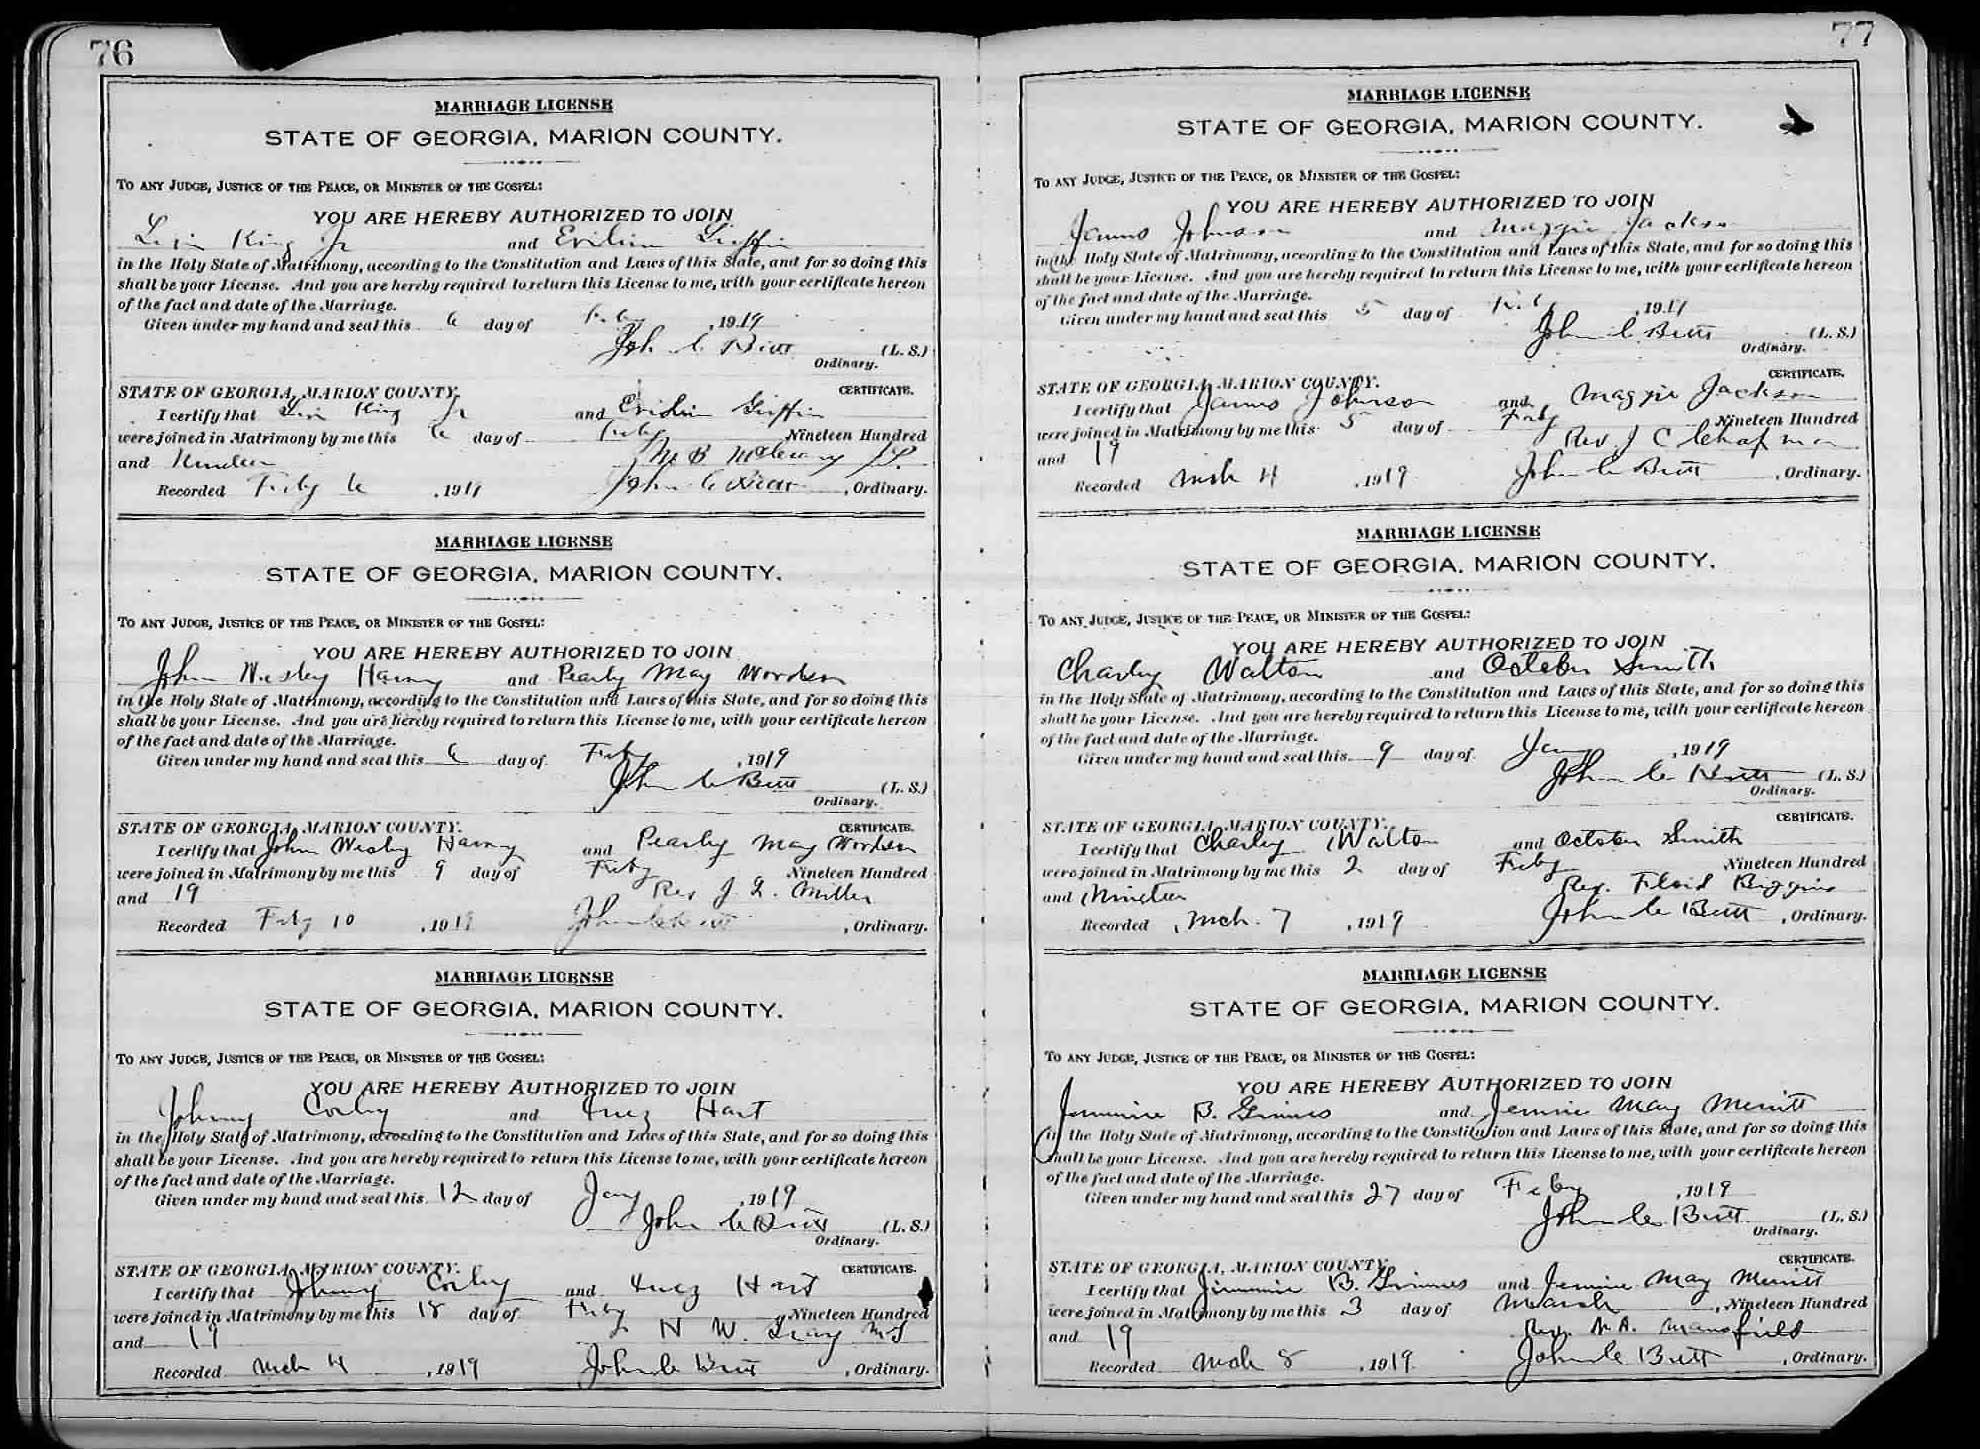 76
MARRIAGE LICENSE
STATE OF GEORGIA, MARION COUNTY.
TO ANY JUDGE, JUSTICE OF THE PEACE, OR MINISTER OF THE GOSPEL:
YOU ARE HEREBY AUTHORIZED TO JOIN
King Jr and Griffin
in the Holy State of Matrimony, according to the Constitution and Laws of this State, and for so doing this
shall be your License. And you are hereby required to return this License to me, with your certificate hereon
of the fact and date of the Marriage.
Given under my hand and seal this 6 day of Feby, 1919
John C Butt (L. S.)
Ordinary.
STATE OF GEORGIA, MARION COUNTY. CERTIFICATE.
I certify that King Jr and Griffin
were joined in Matrimony by me this 6 day of Feby Nineteen Hundred
and
M B
Recorded Feby 6, 1919 John C Butt, Ordinary.
MARRIAGE LICENSE
STATE OF GEORGIA, MARION COUNTY.
TO ANY JUDGE, JUSTICE OF THE PEACE, OR MINISTER OF THE GOSPEL:
YOU ARE HEREBY AUTHORIZED TO JOIN
John Wesley Harvy and Pearly May Worden
in the Holy State of Matrimony, according to the Constitution and Laws of this State, and for so doing this
shall be your License. And you are hereby required to return this License to me, with your certificate hereon
of the fact and date of the Marriage.
Given under my hand and seal this 6 day of Feby, 1919
John C Butt (L. S.)
Ordinary.
STATE OF GEORGIA, MARION COUNTY. CERTIFICATE.
I certify that John Wesley Harvy and Pearly May Worden
were joined in Matrimony by me this 9 day of Feby Nineteen Hundred
and 19 Rev J. Q. Miller
Recorded Feby 10, 1919 John C Butt, Ordinary.
MARRIAGE LICENSE
STATE OF GEORGIA, MARION COUNTY.
TO ANY JUDGE, JUSTICE OF THE PEACE, OR MINISTER OF THE GOSPEL:
YOU ARE HEREBY AUTHORIZED TO JOIN
Johnny Corley and Inez Hart
in the Holy State of Matrimony, according to the Constitution and Laws of this State, and for so doing this
shall be your License. And you are hereby required to return this License to me, with your certificate hereon
of the fact and date of the Marriage.
Given under my hand and seal this 12 day of Jany, 1919
John C Butt (L. S.)
Ordinary.
STATE OF GEORGIA, MARION COUNTY. CERTIFICATE.
I certify that Johnny Corley and Inez Hart
were joined in Matrimony by me this 18 day of Feby Nineteen Hundred
and 19 N W. Gray
Recorded Mch 4, 1919 John C Butt, Ordinary.
77
MARRIAGE LICENSE
STATE OF GEORGIA, MARION COUNTY.
TO ANY JUDGE, JUSTICE OF THE PEACE, OR MINISTER OF THE GOSPEL:
YOU ARE HEREBY AUTHORIZED TO JOIN
James Johnson and Maggie Jackson
in the Holy State of Matrimony, according to the Constitution and Laws of this State, and for so doing this
shall be your License. And you are hereby required to return this License to me, with your certificate hereon
of the fact and date of the Marriage.
Given under my hand and seal this 5 day of Feby, 1919
John C Butt (L. S.)
Ordinary.
STATE OF GEORGIA, MARION COUNTY. CERTIFICATE.
I certify that James Johnson and Maggie Jackson
were joined in Matrimony by me this 5 day of Feby Nineteen Hundred
and 19 Rev. J C Chapman
Recorded Mch 4, 1919 John C Butt, Ordinary.
MARRIAGE LICENSE
STATE OF GEORGIA, MARION COUNTY.
TO ANY JUDGE, JUSTICE OF THE PEACE, OR MINISTER OF THE GOSPEL:
YOU ARE HEREBY AUTHORIZED TO JOIN
Charley Walton and October Smith
in the Holy State of Matrimony, according to the Constitution and Laws of this State, and for so doing this
shall be your License. And you are hereby required to return this License to me, with your certificate hereon
of the fact and date of the Marriage.
Given under my hand and seal this 9 day of Jany, 1919
John C Butt (L. S.)
Ordinary.
STATE OF GEORGIA, MARION COUNTY. CERTIFICATE.
I certify that Charley Walton and October Smith
were joined in Matrimony by me this 2 day of Feby Nineteen Hundred
and Nineteen Rev. Floid Biggins
Recorded Mch. 7, 1919 John C Butt, Ordinary.
MARRIAGE LICENSE
STATE OF GEORGIA, MARION COUNTY.
TO ANY JUDGE, JUSTICE OF THE PEACE, OR MINISTER OF THE GOSPEL:
YOU ARE HEREBY AUTHORIZED TO JOIN
Jimmie B. Grimes and Jennie May Merritt
in the Holy State of Matrimony, according to the Constitution and Laws of this State, and for so doing this
shall be your License. And you are hereby required to return this License to me, with your certificate hereon
of the fact and date of the Marriage.
Given under my hand and seal this 27 day of Feby, 1919
John C. Butt (L. S.)
Ordinary.
STATE OF GEORGIA, MARION COUNTY. CERTIFICATE.
I certify that Jimmie B. Grimes and Jennie May Merritt
were joined in Matrimony by me this 3 day of March, Nineteen Hundred
and 19 Rev. N. A. Mansfield
Recorded Mch 8, 1919 John C Butt, Ordinary.